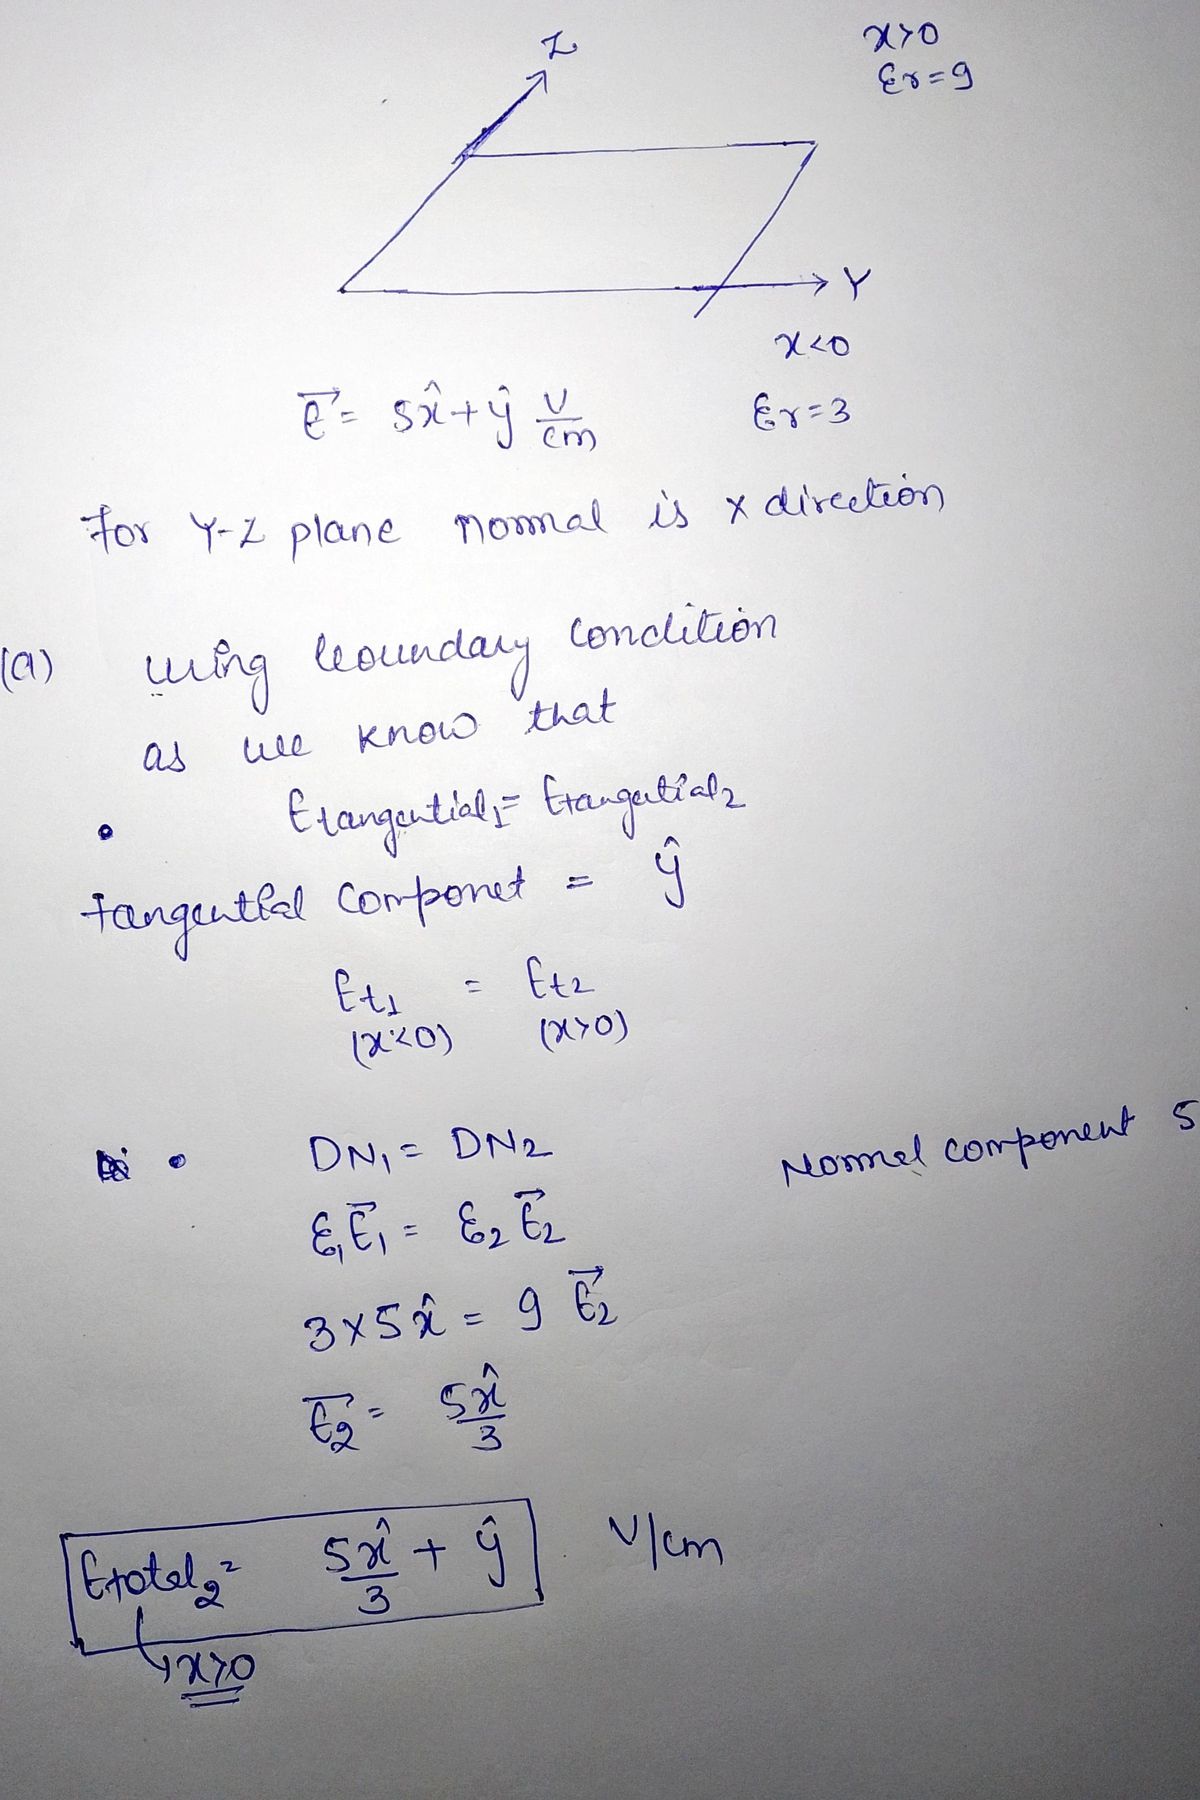 Z
x>0
εr=9
Y
x<0
E⃗ = 5x̂+ŷ V/cm
εr=3
For Y-Z plane normal is x direction
(a) using boundary condition
as we know that
• Etangential₁= Etangential₂
tangential componet = ŷ
Et₁ = Et₂
(x<0) (x>0)
• DN₁ = DN₂
Normal component 5
ε₁E⃗₁ = ε₂E⃗₂
3×5x̂ = 9 E⃗₂
E⃗₂ = 5x̂/3
Etotal₂= 5x̂/3 + ŷ V/cm
x>0